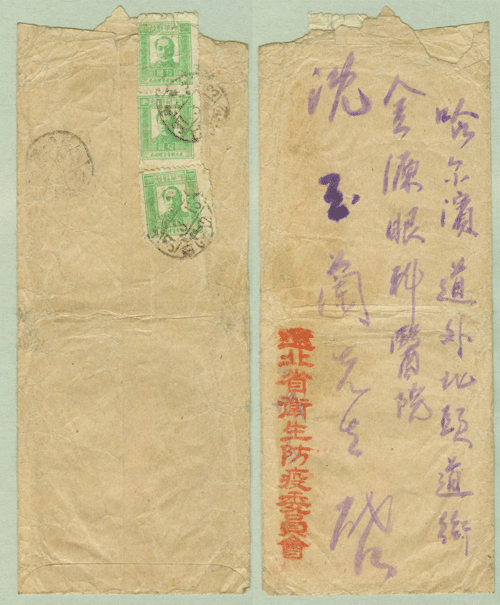 哈尔濱道外北頭道街
金源眼科醫院
沈玉蘭先生 啓
遼北省衛生防疫委員會